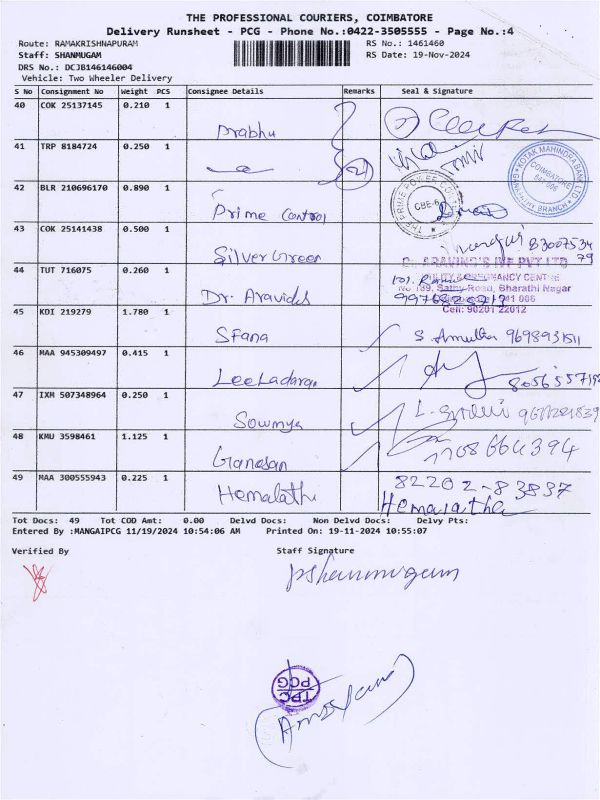 THE PROFESSIONAL COURIERS, COIMBATORE
Delivery Runsheet - PCG - Phone No.:0422-3505555 - Page No.:4
Route: RAMAKRISHNAPURAM RS No.: 1461460
Staff: SHANMUGAM RS Date: 19-Nov-2024
DRS No.: DCJB146146004
Vehicle: Two Wheeler Delivery
S No Consignment No Weight PCS Consignee Details Remarks Seal & Signature
40 COK 25137145 0.210 1
Prabhu
41 TRP 8184724 0.250 1
KOTAK MAHINDRA BANK LTD
COIMBATORE
641 006
BRANCH
42 BLR 210696170 0.890 1
Prime Control
CBE-6
43 COK 25141438 0.500 1
Silver Green
83007534
79
44 TUT 716075 0.260 1
Dr. Aravinds
Dr. ARAVIND'S IVF PVT LTD
FERTILITY & PREGNANCY CENTRE
No 189, Sathy Road, Bharathi Nagar
641 006
Cell: 90201 22012
45 KDI 219279 1.780 1
Sfana S. Amutha 9698931511
46 MAA 945309497 0.415 1
Leeladaran
47 IXM 507348964 0.250 1
Sowmya
48 KMU 3598461 1.125 1
Ganesan 7708664394
49 MAA 300555943 0.225 1
Hemalatha 82202-83837
Hemalatha
Tot Docs: 49 Tot COD Amt: 0.00 Delvd Docs: Non Delvd Docs: Delvy Pts:
Entered By :MANGAIPCG 11/19/2024 10:54:06 AM Printed On: 19-11-2024 10:55:07
Verified By Staff Signature
pshanmugam
TPC
PCG